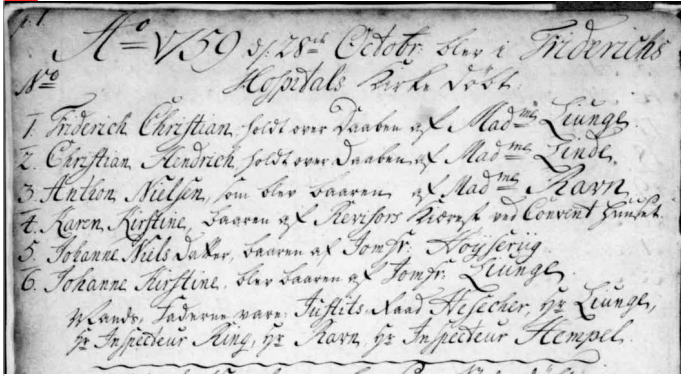 Aº 1759 d: 28de Octobr: blev i Friderichs
No Hospitals Kirke døbt
1. Friderich Christian, holdt over Daaben af Madme Liunge.
2. Christian Hendrich holdt over Daaben af Madme Linde.
3. Anthon Nielsen, som blev baaren af Madme Ravn
4. Karen Kirstine, baaren af Revisors Kiærest ved Convent Huuset.
5. Johanne Niels Datter, baaren af Jomfr:
6. Johanne Kirstine, blev baaren af Jomfr: Liunge.
Mands Faderne vare: Justits-Raad Hr Liunge,
Hr Inspecteur Ring, Hr Ravn, Hr Inspecteur Hempel.